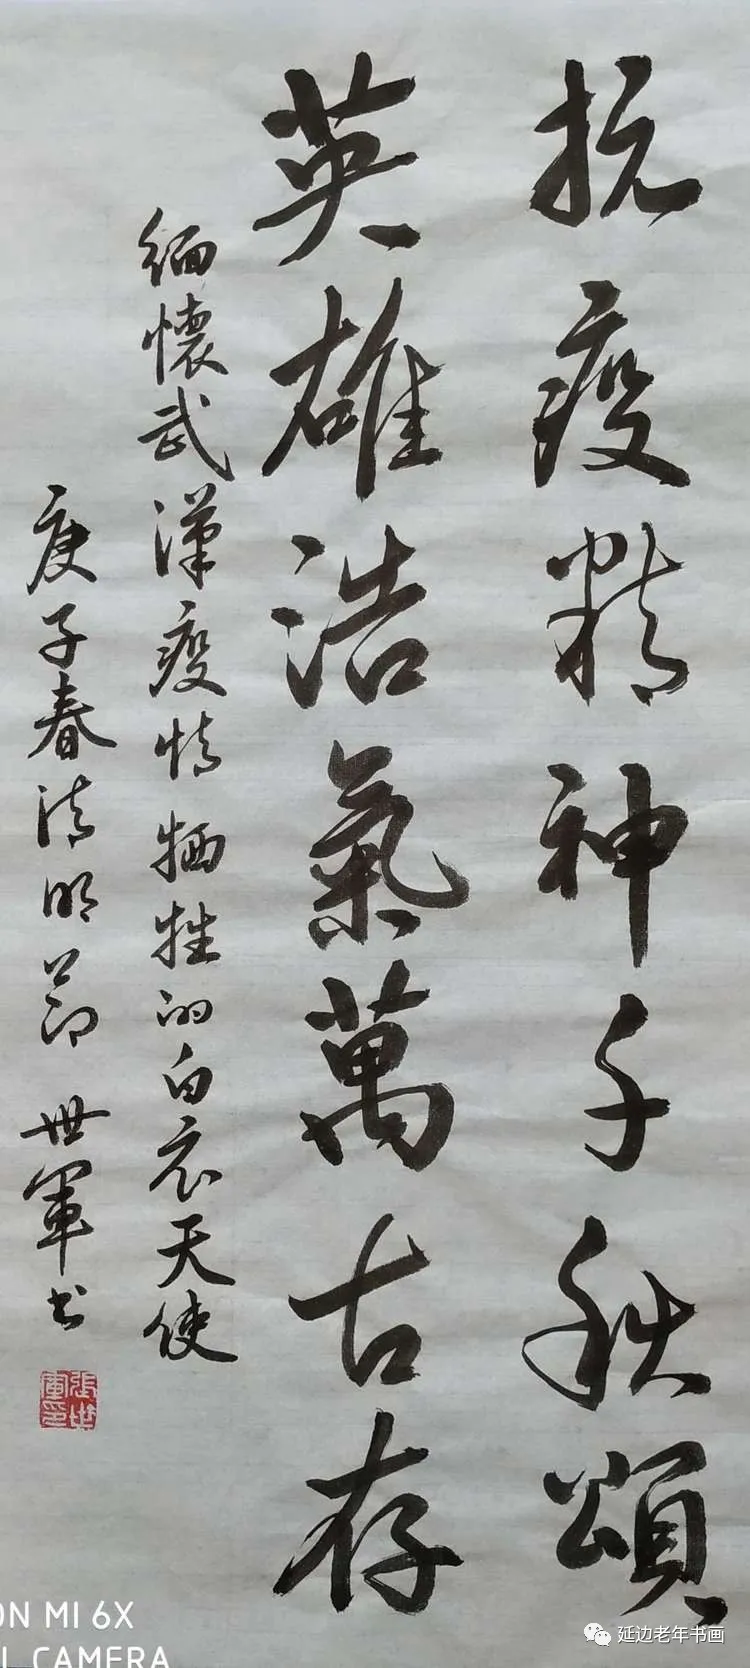 抗疫精神千秋頌
英雄浩氣萬古存
緬懷武漢疫情犧牲的白衣天使
庚子春清明節 世軍书
張世軍印
ON MI 6X
L CAMERA
延边老年书画